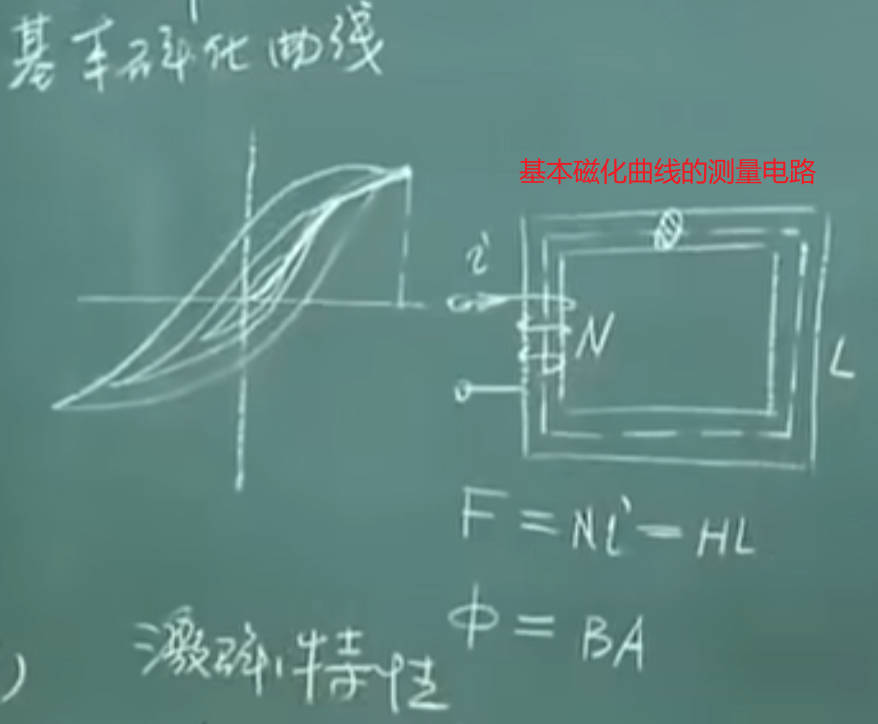 基本磁化曲线
基本磁化曲线的测量电路
i
N
L
F = Ni = HL
Φ = BA
) 激磁特性